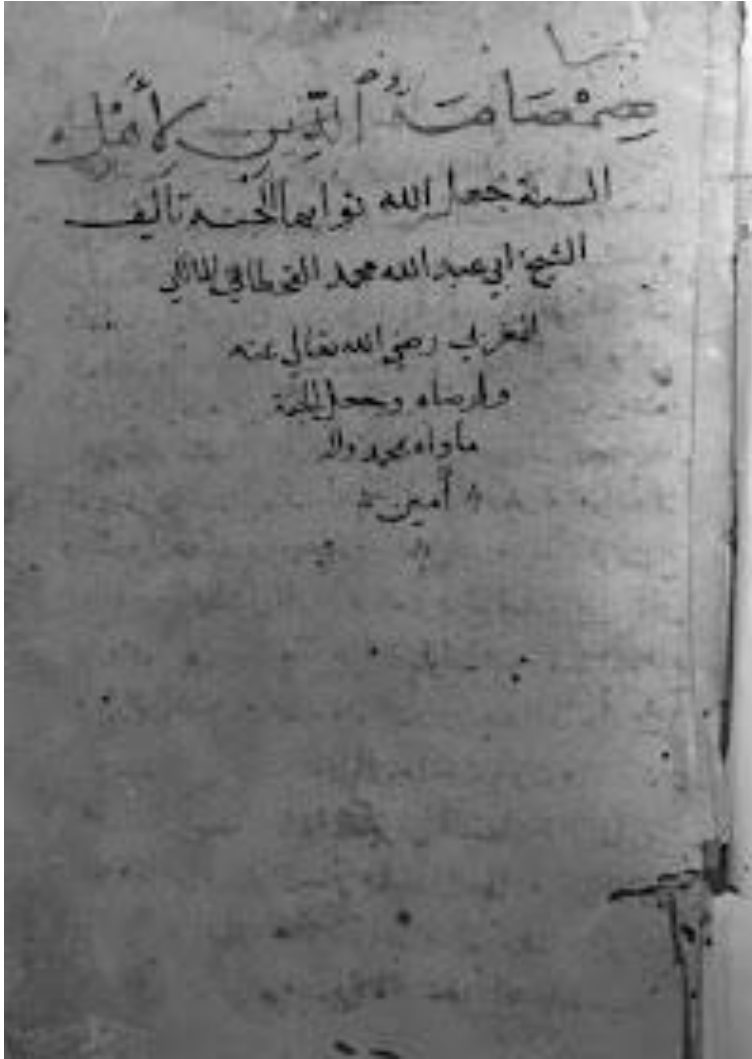 صَمْصَامَة الدِّين لأَهْل
السنة جعل الله ثوابها الجنة تأليف
الشيخ ابي عبد الله محمد المالكي
المغربي رضي الله تعالى عنه
وارضاه وجعل الجنة
مأواه بمحمد واله
أمين